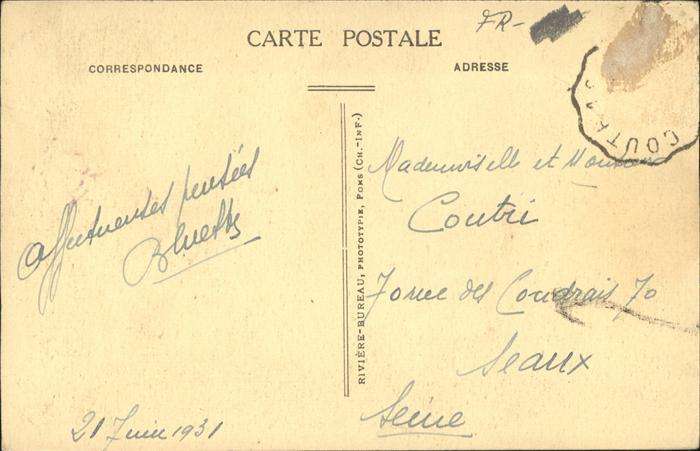 FR-
CARTE POSTALE
CORRESPONDANCE
ADRESSE
COUTRAS
Affectueuses pensées
Bluette
21 Juin 1931
RIVIÈRE-BUREAU, PHOTOTYPIE, PONS (CH.-INF.)
Mademoiselle et Monsieur
Coutri
70 rue des Coudrais 70
Seaux
Seine